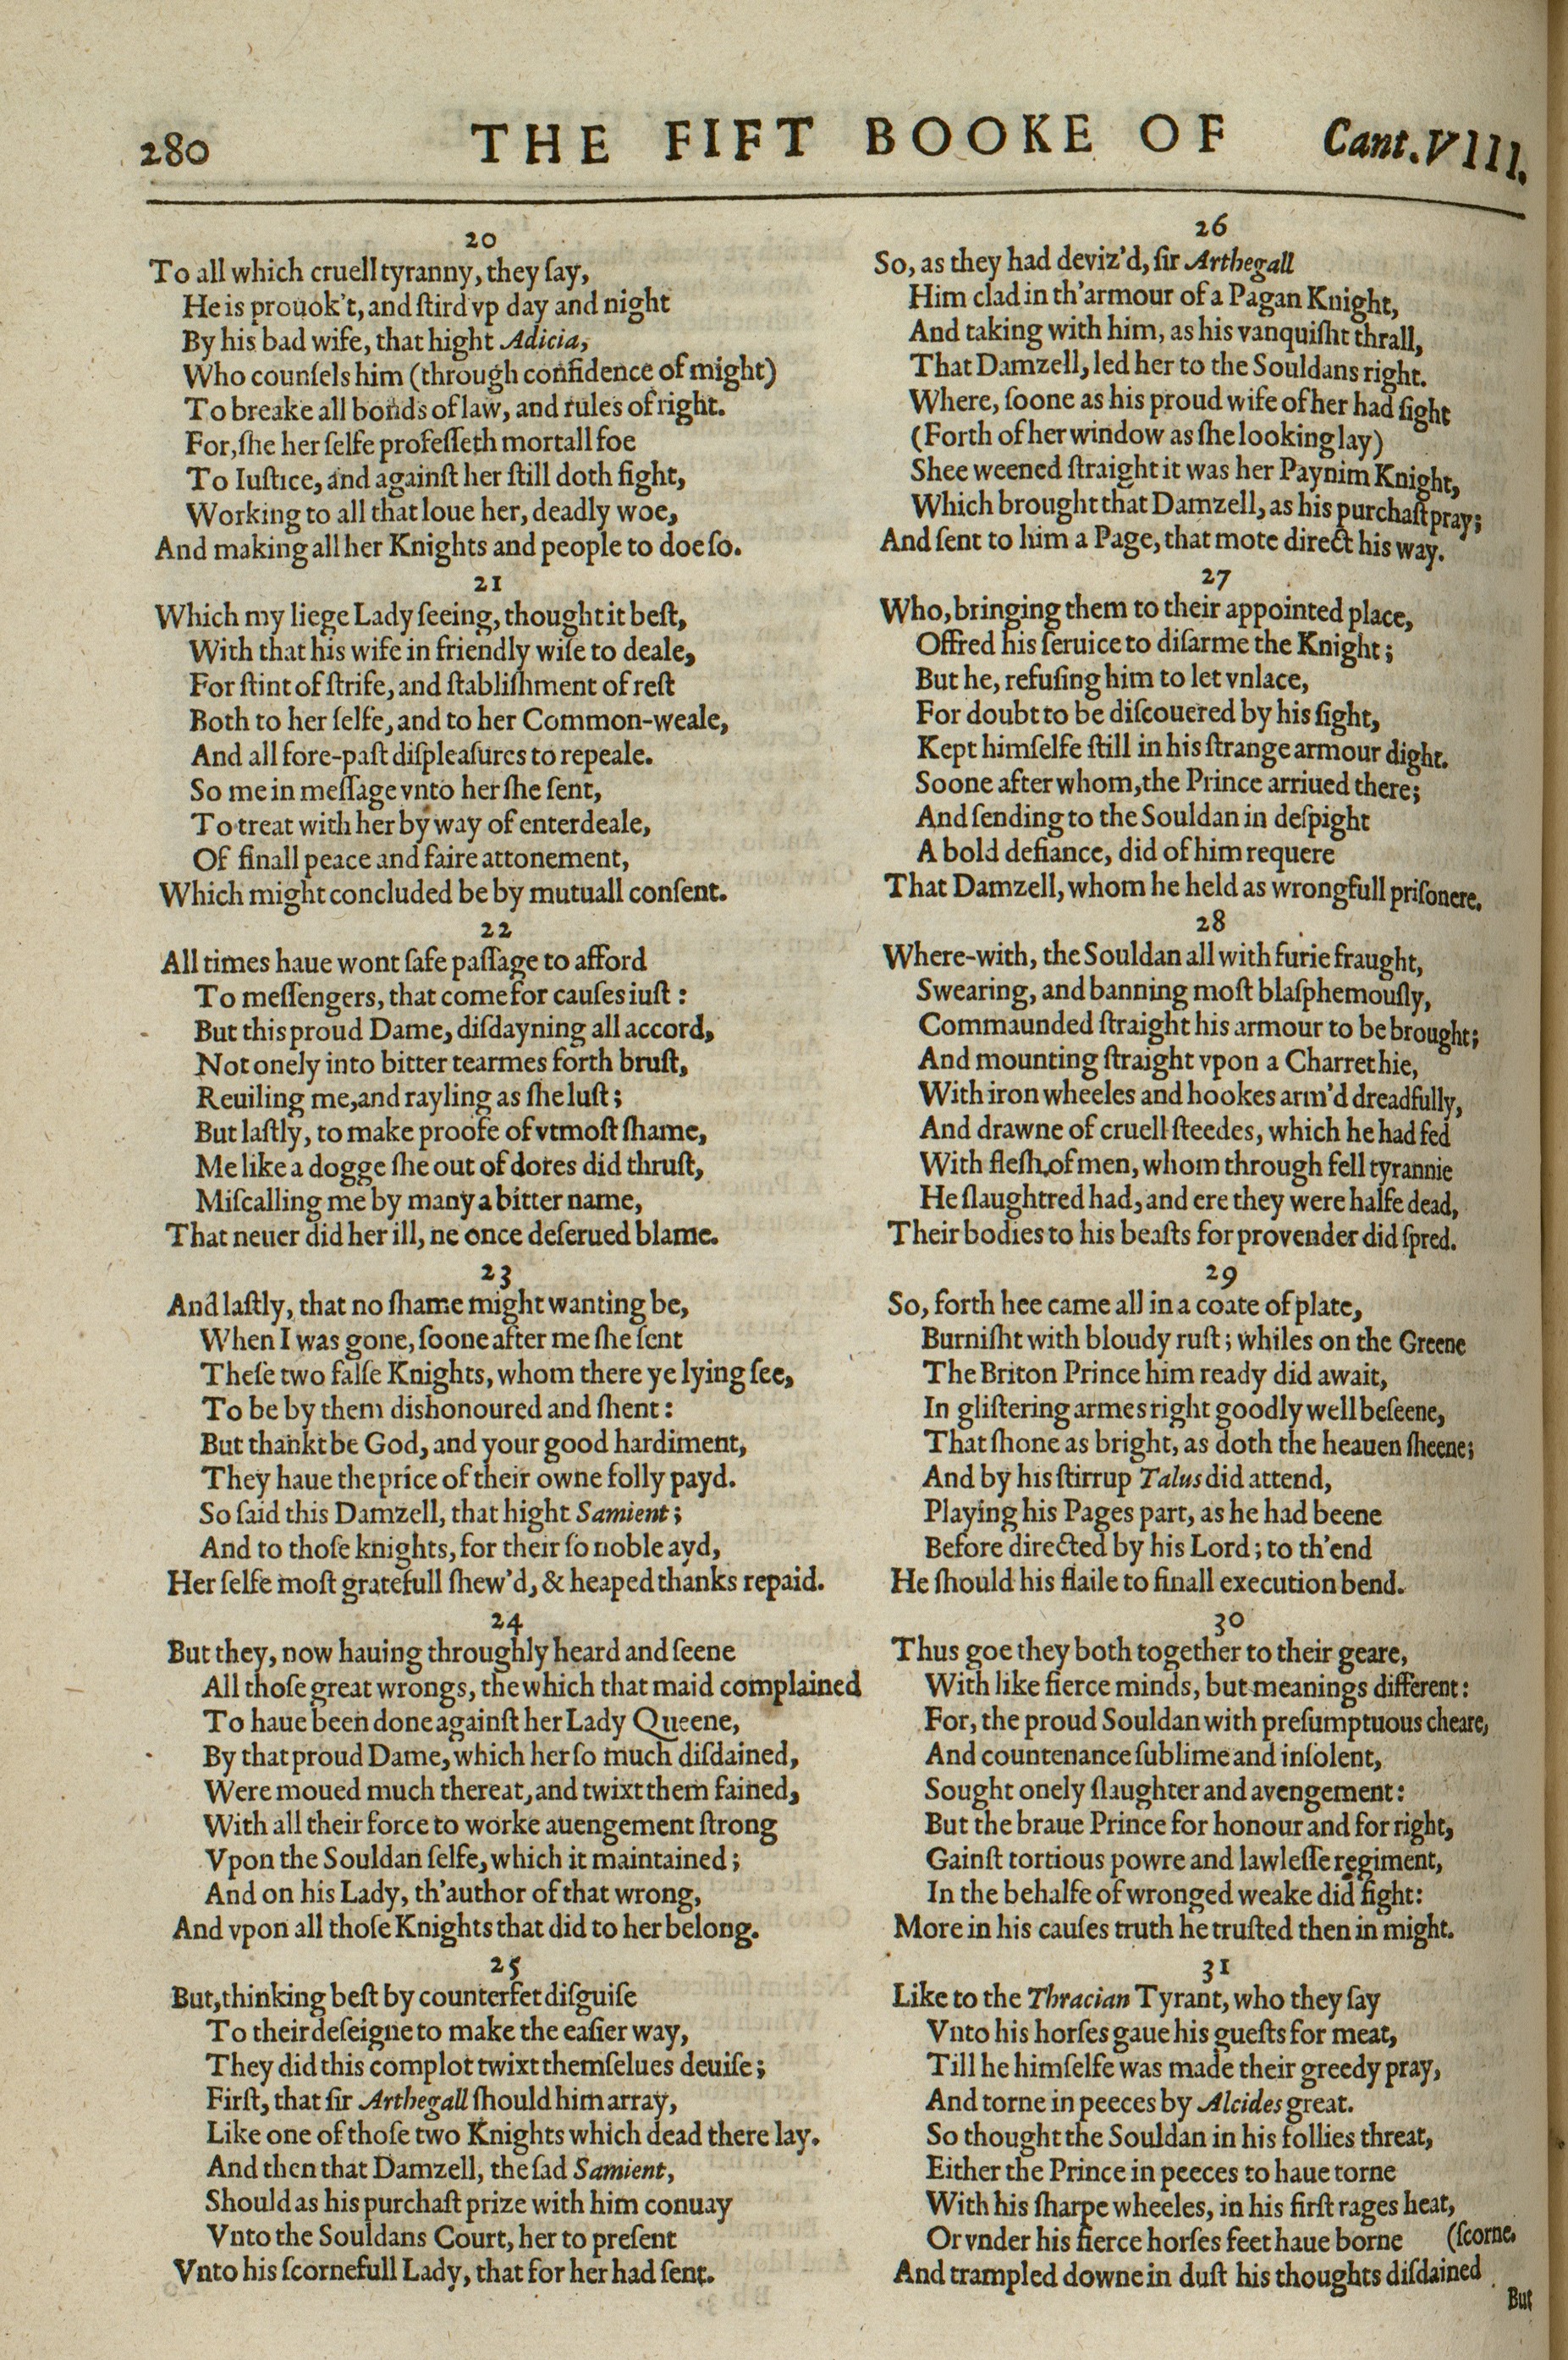 280 THE FIFT BOOKE OF Cant. VIII.
20
To all which cruell tyranny, they ſay,
He is prouok't, and ſtird vp day and night
By his bad wife, that hight Adicia,
Who counſels him (through confidence of might)
To breake all bonds of law, and rules of right.
For, ſhe her ſelfe profeſſeth mortall foe
To Iuſtice, and againſt her ſtill doth fight,
Working to all that loue her, deadly woe,
And making all her Knights and people to doe ſo.
21
Which my liege Lady ſeeing, thought it beſt,
With that his wife in friendly wiſe to deale,
For ſtint of ſtrife, and ſtabliſhment of reſt
Both to her ſelfe, and to her Common-weale,
And all fore-paſt diſpleaſures to repeale.
So me in meſſage vnto her ſhe ſent,
To treat with her by way of enterdeale,
Of finall peace and faire attonement,
Which might concluded be by mutuall conſent.
22
All times haue wont ſafe paſſage to afford
To meſſengers, that come for cauſes iuſt :
But this proud Dame, diſdayning all accord,
Not onely into bitter tearmes forth bruſt,
Reuiling me, and rayling as ſhe luſt ;
But laſtly, to make proofe of vtmoſt ſhame,
Me like a dogge ſhe out of dores did thruſt,
Miſcalling me by many a bitter name,
That neuer did her ill, ne once deſerued blame.
23
And laſtly, that no ſhame might wanting be,
When I was gone, ſoone after me ſhe ſent
Theſe two falſe Knights, whom there ye lying ſee,
To be by them dishonoured and ſhent :
But thankt be God, and your good hardiment,
They haue the price of their owne folly payd.
So ſaid this Damzell, that hight Samient ;
And to thoſe knights, for their ſo noble ayd,
Her ſelfe moſt gratefull ſhew'd, & heaped thanks repaid.
24
But they, now hauing throughly heard and ſeene
All thoſe great wrongs, the which that maid complained
To haue been done againſt her Lady Queene,
By that proud Dame, which her ſo much diſdained,
Were moued much thereat, and twixt them fained,
With all their force to worke auengement ſtrong
Vpon the Souldan ſelfe, which it maintained ;
And on his Lady, th'author of that wrong,
And vpon all thoſe Knights that did to her belong.
25
But, thinking beſt by counterfet diſguiſe
To their deſeigne to make the eaſier way,
They did this complot twixt themſelues deuiſe ;
Firſt, that ſir Arthegall ſhould him array,
Like one of thoſe two Knights which dead there lay.
And then that Damzell, the ſad Samient,
Should as his purchaſt prize with him conuay
Vnto the Souldans Court, her to preſent
Vnto his ſcornefull Lady, that for her had ſent.
26
So, as they had deviz'd, ſir Arthegall
Him clad in th'armour of a Pagan Knight,
And taking with him, as his vanquiſht thrall,
That Damzell, led her to the Souldans right.
Where, ſoone as his proud wife of her had ſight
(Forth of her window as ſhe looking lay)
Shee weened ſtraight it was her Paynim Knight,
Which brought that Damzell, as his purchaſt pray ;
And ſent to him a Page, that mote direct his way.
27
Who, bringing them to their appointed place,
Offred his ſeruice to diſarme the Knight ;
But he, refuſing him to let vnlace,
For doubt to be diſcouered by his ſight,
Kept himſelfe ſtill in his ſtrange armour dight.
Soone after whom, the Prince arriued there ;
And ſending to the Souldan in deſpight
A bold defiance, did of him requere
That Damzell, whom he held as wrongfull priſonere.
28
Where-with, the Souldan all with furie fraught,
Swearing, and banning moſt blaſphemouſly,
Commaunded ſtraight his armour to be brought ;
And mounting ſtraight vpon a Charret hie,
With iron wheeles and hookes arm'd dreadfully,
And drawne of cruell ſteedes, which he had fed
With fleſh of men, whom through fell tyrannie
He ſlaughtred had, and ere they were halfe dead,
Their bodies to his beaſts for provender did ſpred.
29
So, forth hee came all in a coate of plate,
Burniſht with bloudy ruſt ; whiles on the Greene
The Briton Prince him ready did await,
In gliſtering armes right goodly well beſeene,
That ſhone as bright, as doth the heauen ſheene ;
And by his ſtirrup Talus did attend,
Playing his Pages part, as he had beene
Before directed by his Lord ; to th'end
He ſhould his flaile to finall execution bend.
30
Thus goe they both together to their geare,
With like fierce minds, but meanings different :
For, the proud Souldan with preſumptuous cheare,
And countenance ſublime and inſolent,
Sought onely ſlaughter and avengement :
But the braue Prince for honour and for right,
Gainſt tortious powre and lawleſſe regiment,
In the behalfe of wronged weake did fight :
More in his cauſes truth he truſted then in might.
31
Like to the Thracian Tyrant, who they ſay
Vnto his horſes gaue his gueſts for meat,
Till he himſelfe was made their greedy pray,
And torne in peeces by Alcides great.
So thought the Souldan in his follies threat,
Either the Prince in peeces to haue torne
With his ſharpe wheeles, in his firſt rages heat,
Or vnder his fierce horſes feet haue borne (ſcorne.
And trampled downe in duſt his thoughts diſdained
But